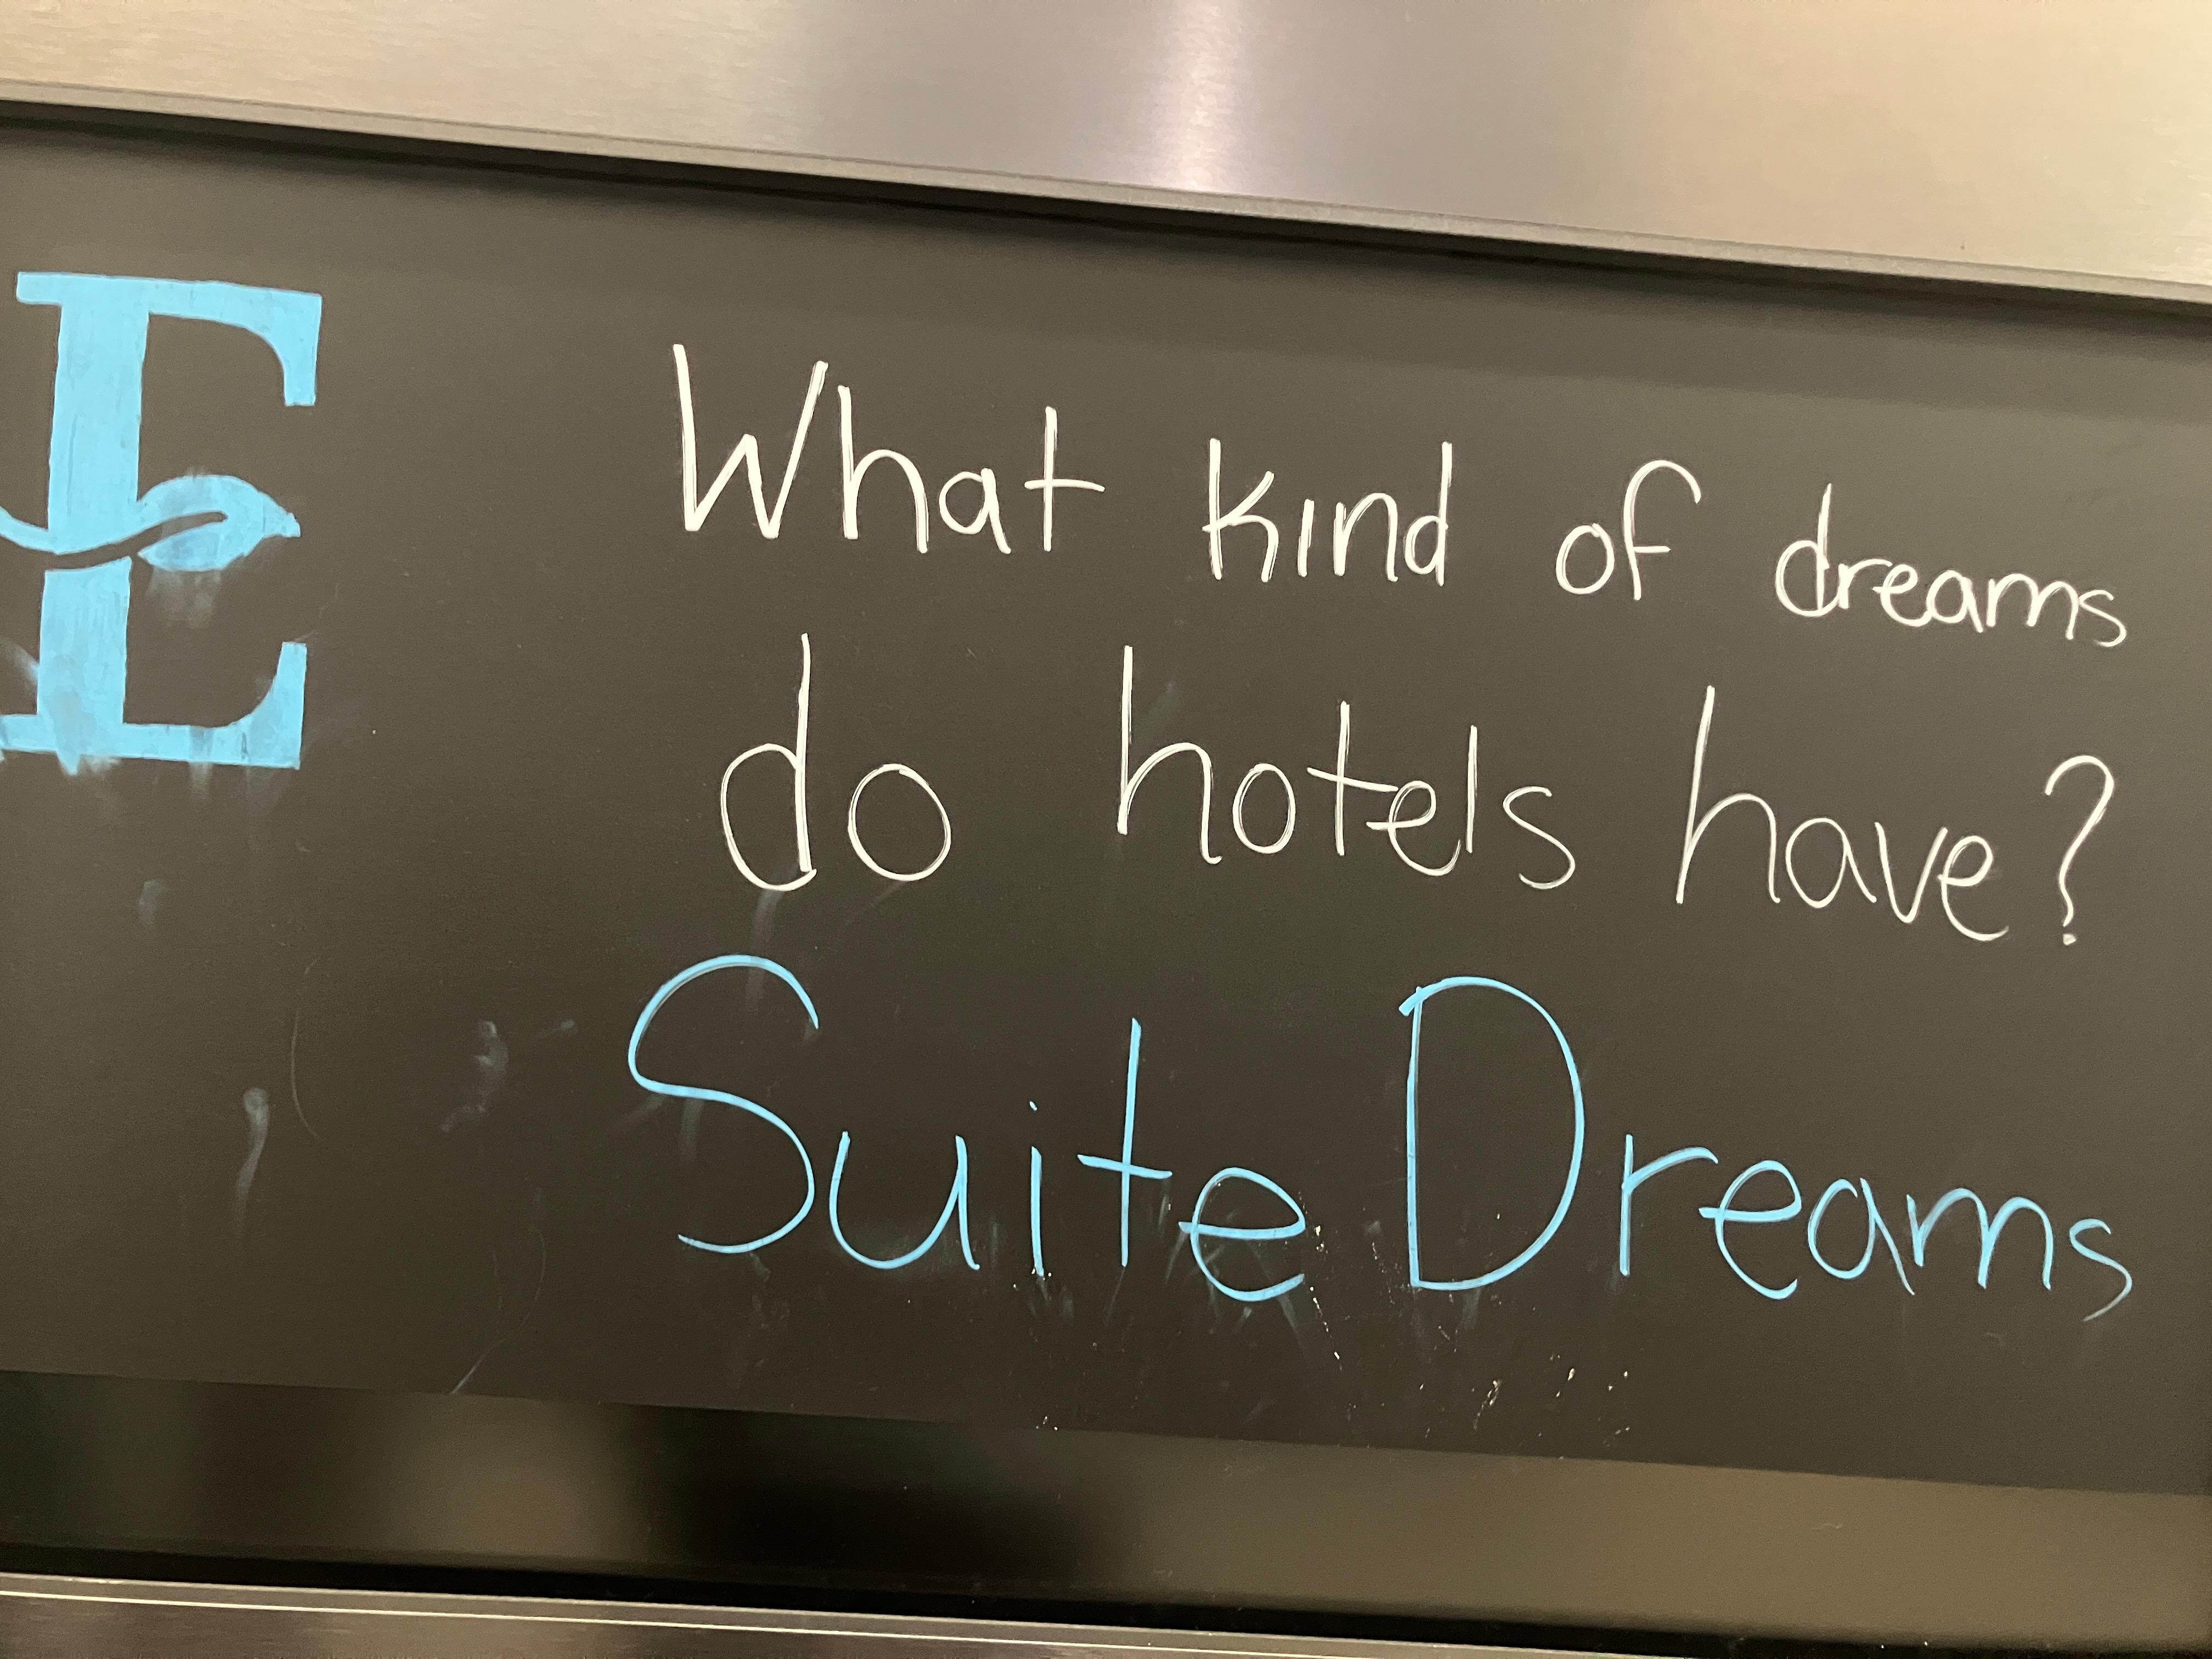 E
What kind of dreams
do hotels have?
Suite Dreams